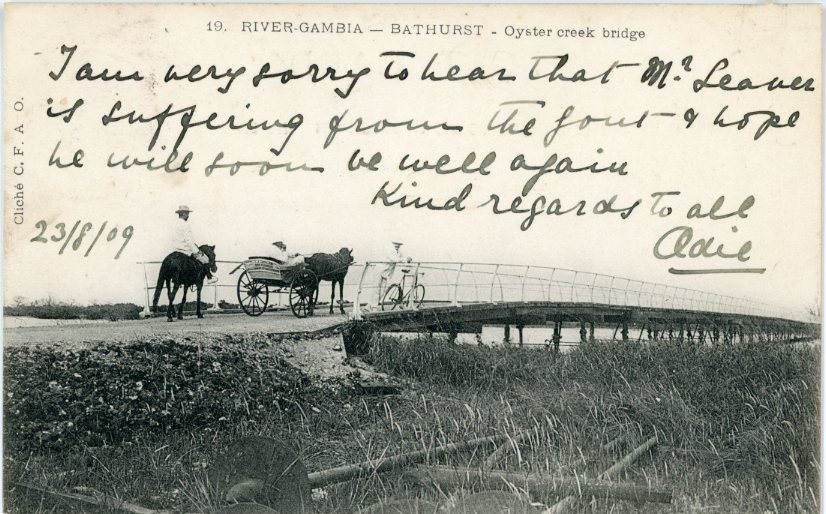 19. RIVER-GAMBIA — BATHURST - Oyster creek bridge
I am very sorry to hear that Mr Leaver
is suffering from the gout & hope
he will soon be well again
Kind regards to all
Adie
23/8/09
Cliché C. F. A O.